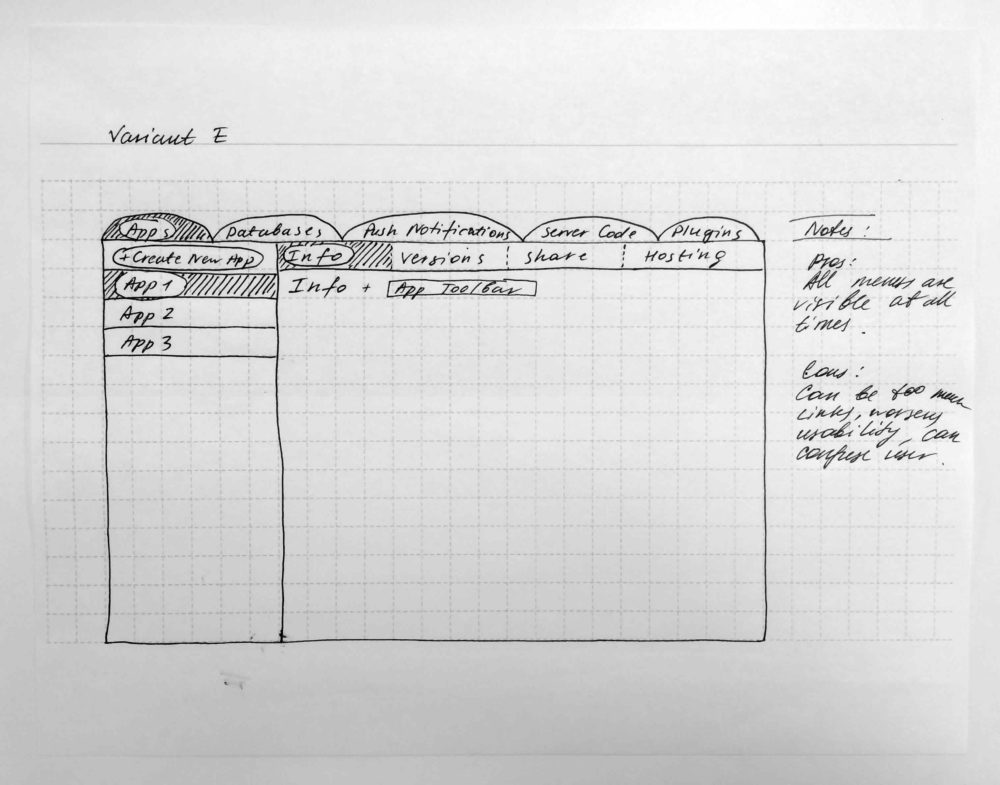 Variant E
Apps Databases Push Notifications Server Code Plugins
+Create New App Info Versions Share Hosting
App 1 Info + App ToolBar
App 2
App 3
Notes:
Pros:
All menus are
visible at all
times.
Cons:
Can be too much
links, worsens
usability, can
confuse user.